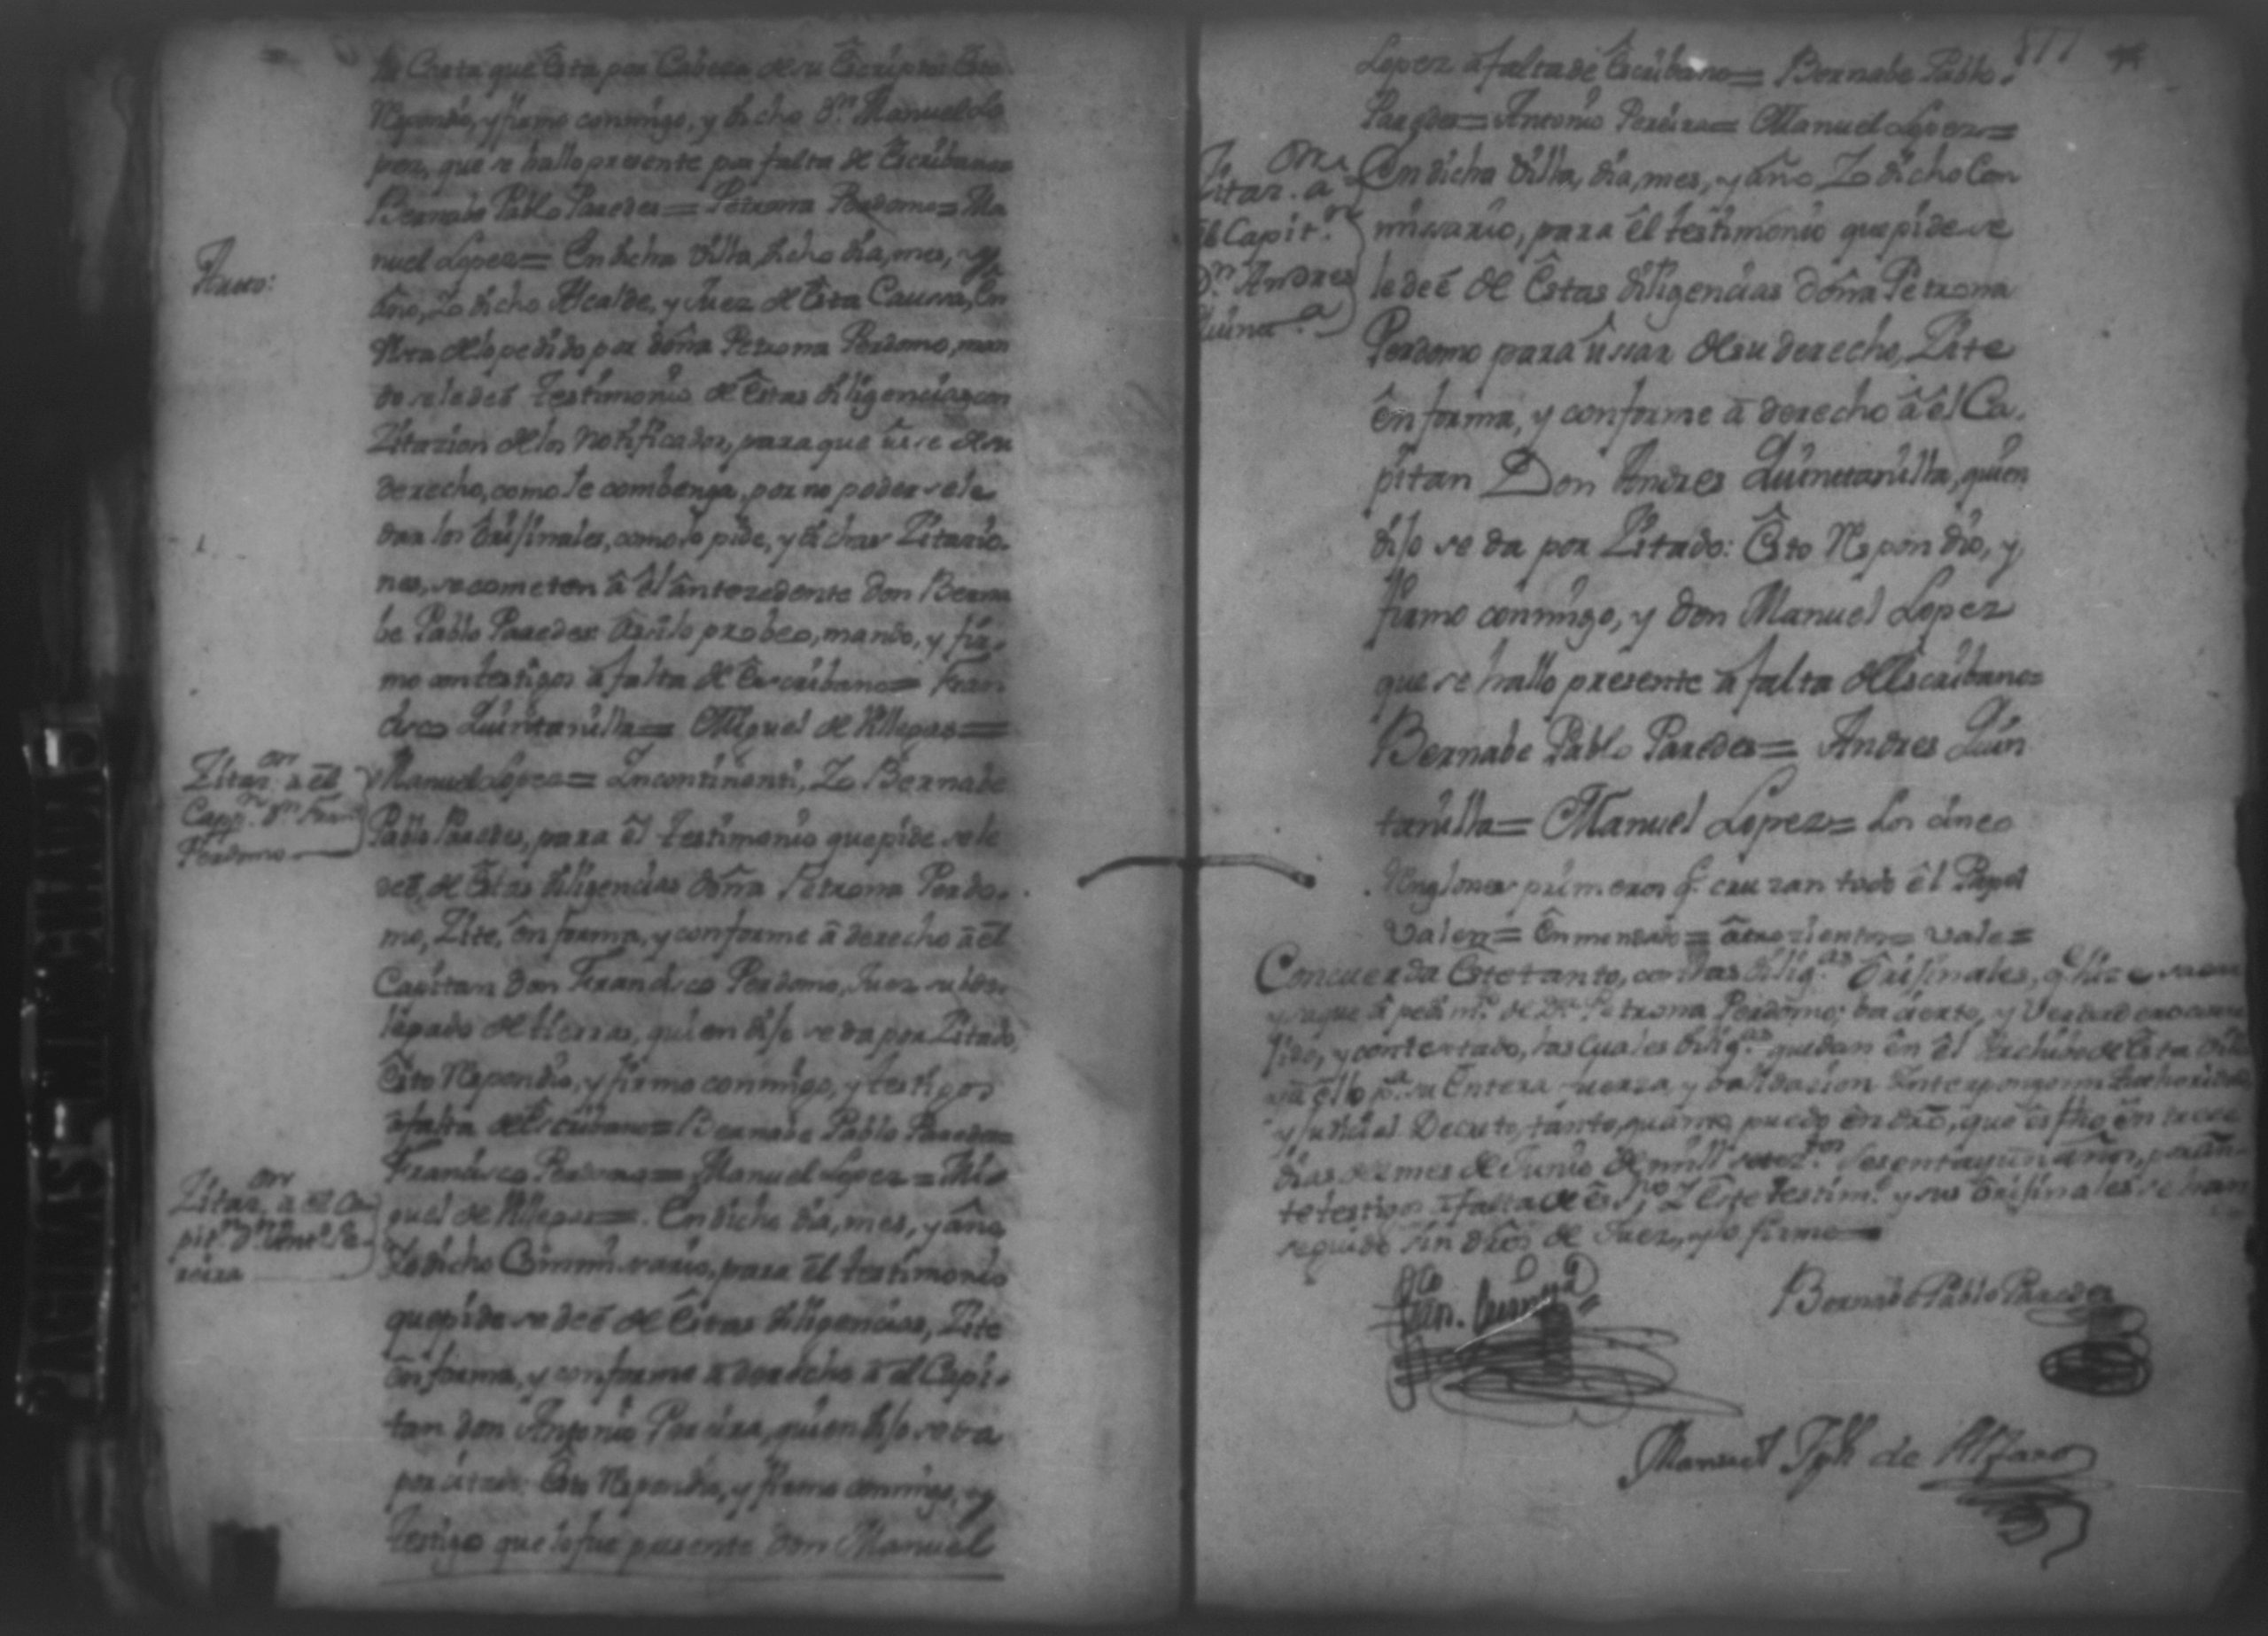 la Carta que Esta por Cabeza de su Escripto: Esto
Respondio, y firmo conmigo, y dicho D.n Manuel Lo
pez, que se hallo presente por falta de Escribano=
Bernabe Pablo Paredes= Petrona Perdomo= Ma
Auto:
nuel Lopez= En dicha Villa, dicho dia, mes, y
año, Yo dicho Alcalde, y Juez de Esta Caussa, En
Vista de lo pedido por doña Petrona Perdomo, man
do se le deé testimonio de Estas diligencias, con
Zitazion de los Notificados, para que use de su
derecho, como le combenga, por no poderse le
dar los Orijinales, como lo pide, y dichas Zitazio-
nes, se cometen â êl ântezedente don Berna
be Pablo Paredes: Assi lo probeo, mando, y fir-
mo con testigos â falta de Escribano= Fran
cisco Quintanilla= Miguel de Villegas=
Zitaz.on a el
Capp.n D.n Fran.co
Perdomo
Manuel Lopez= Incontinenti, Yo Bernabe
Pablo Paredes, para êl testimonio que pide se le
deé, de Estas diligencias doña Petrona Perdo-
mo, Zite, ên forma, y conforme â derecho â êl
Capitan don Francisco Perdomo, Juez subde-
legado de tierras, quien dijo se da por Zitado,
Esto Respondio, y firmo conmigo, y testigos
a falta de Escribano= Bernabe Pablo Paredes=
Francisco Perdomo= Manuel Lopez= Mi-
Zitaz.on a el Ca
pit.n D.n Ant.o Pe-
reira
guel de Villegas=. En dicho dia, mes, y año
Yo dicho Commissario, para êl testimonio
que pide se deé de Estas diligencias, Zite
ên forma, y conforme â derecho â el Capi-
tan don Antonio Pereira, quien dijo se da
por citado: Esto Respondio, y firmo conmigo, y
testigo que lo fue presente don Manuel
577
Lopez a falta de Escribano= Bernabe Pablo
Paredes= Antonio Pereira= Manuel Lopez=
Zitaz.on a
el Capit.n
D.n Andres
Quint.a
En dicha Villa, dia, mes, y año Yo dicho Com
missario, para êl testimonio que pide se
le deé de Estas diligencias doña Petrona
Perdomo para ussar de su derecho, Zite
ên forma, y conforme â derecho â êl Ca-
pitan Don Andres Quintanilla, quien
dijo se da por Zitado: Esto Respondio, y
firmo conmigo, y don Manuel Lopez
que se hallo presente a falta de Escribano=
Bernabe Pablo Paredes= Andres Quin
tanilla= Manuel Lopez= Los cinco
Renglones primeros q.e cruzan todo êl Papel
Valen= Enmendado= vale=
Concuerda Este tanto, con las dilig.as Orijinales, q.e hize sacar
y saque â pedim.to de D.a Petrona Perdomo; ba cierto, y Verdadero corre
jido, y consertado, las Cuales dilig.as quedan ên êl Archibo de Esta Villa
y a êllo p.a su Entera fuerza, y balidazion Interpongo mi Authoridad
y judicial Decreto, tanto, quanto puedo ên dro, que ês fho ên treze
dias del mes de Junio de mill setez.tos Sesenta y un años, por an-
te testigos â falta de Es.no, Y Este testim.o y sus Orijinales se han
seguido sin dros de Juez, y lo firme=
Fran.co Quint.a
Bernabe Pablo Paredes
Manuel Jph de Alfaro